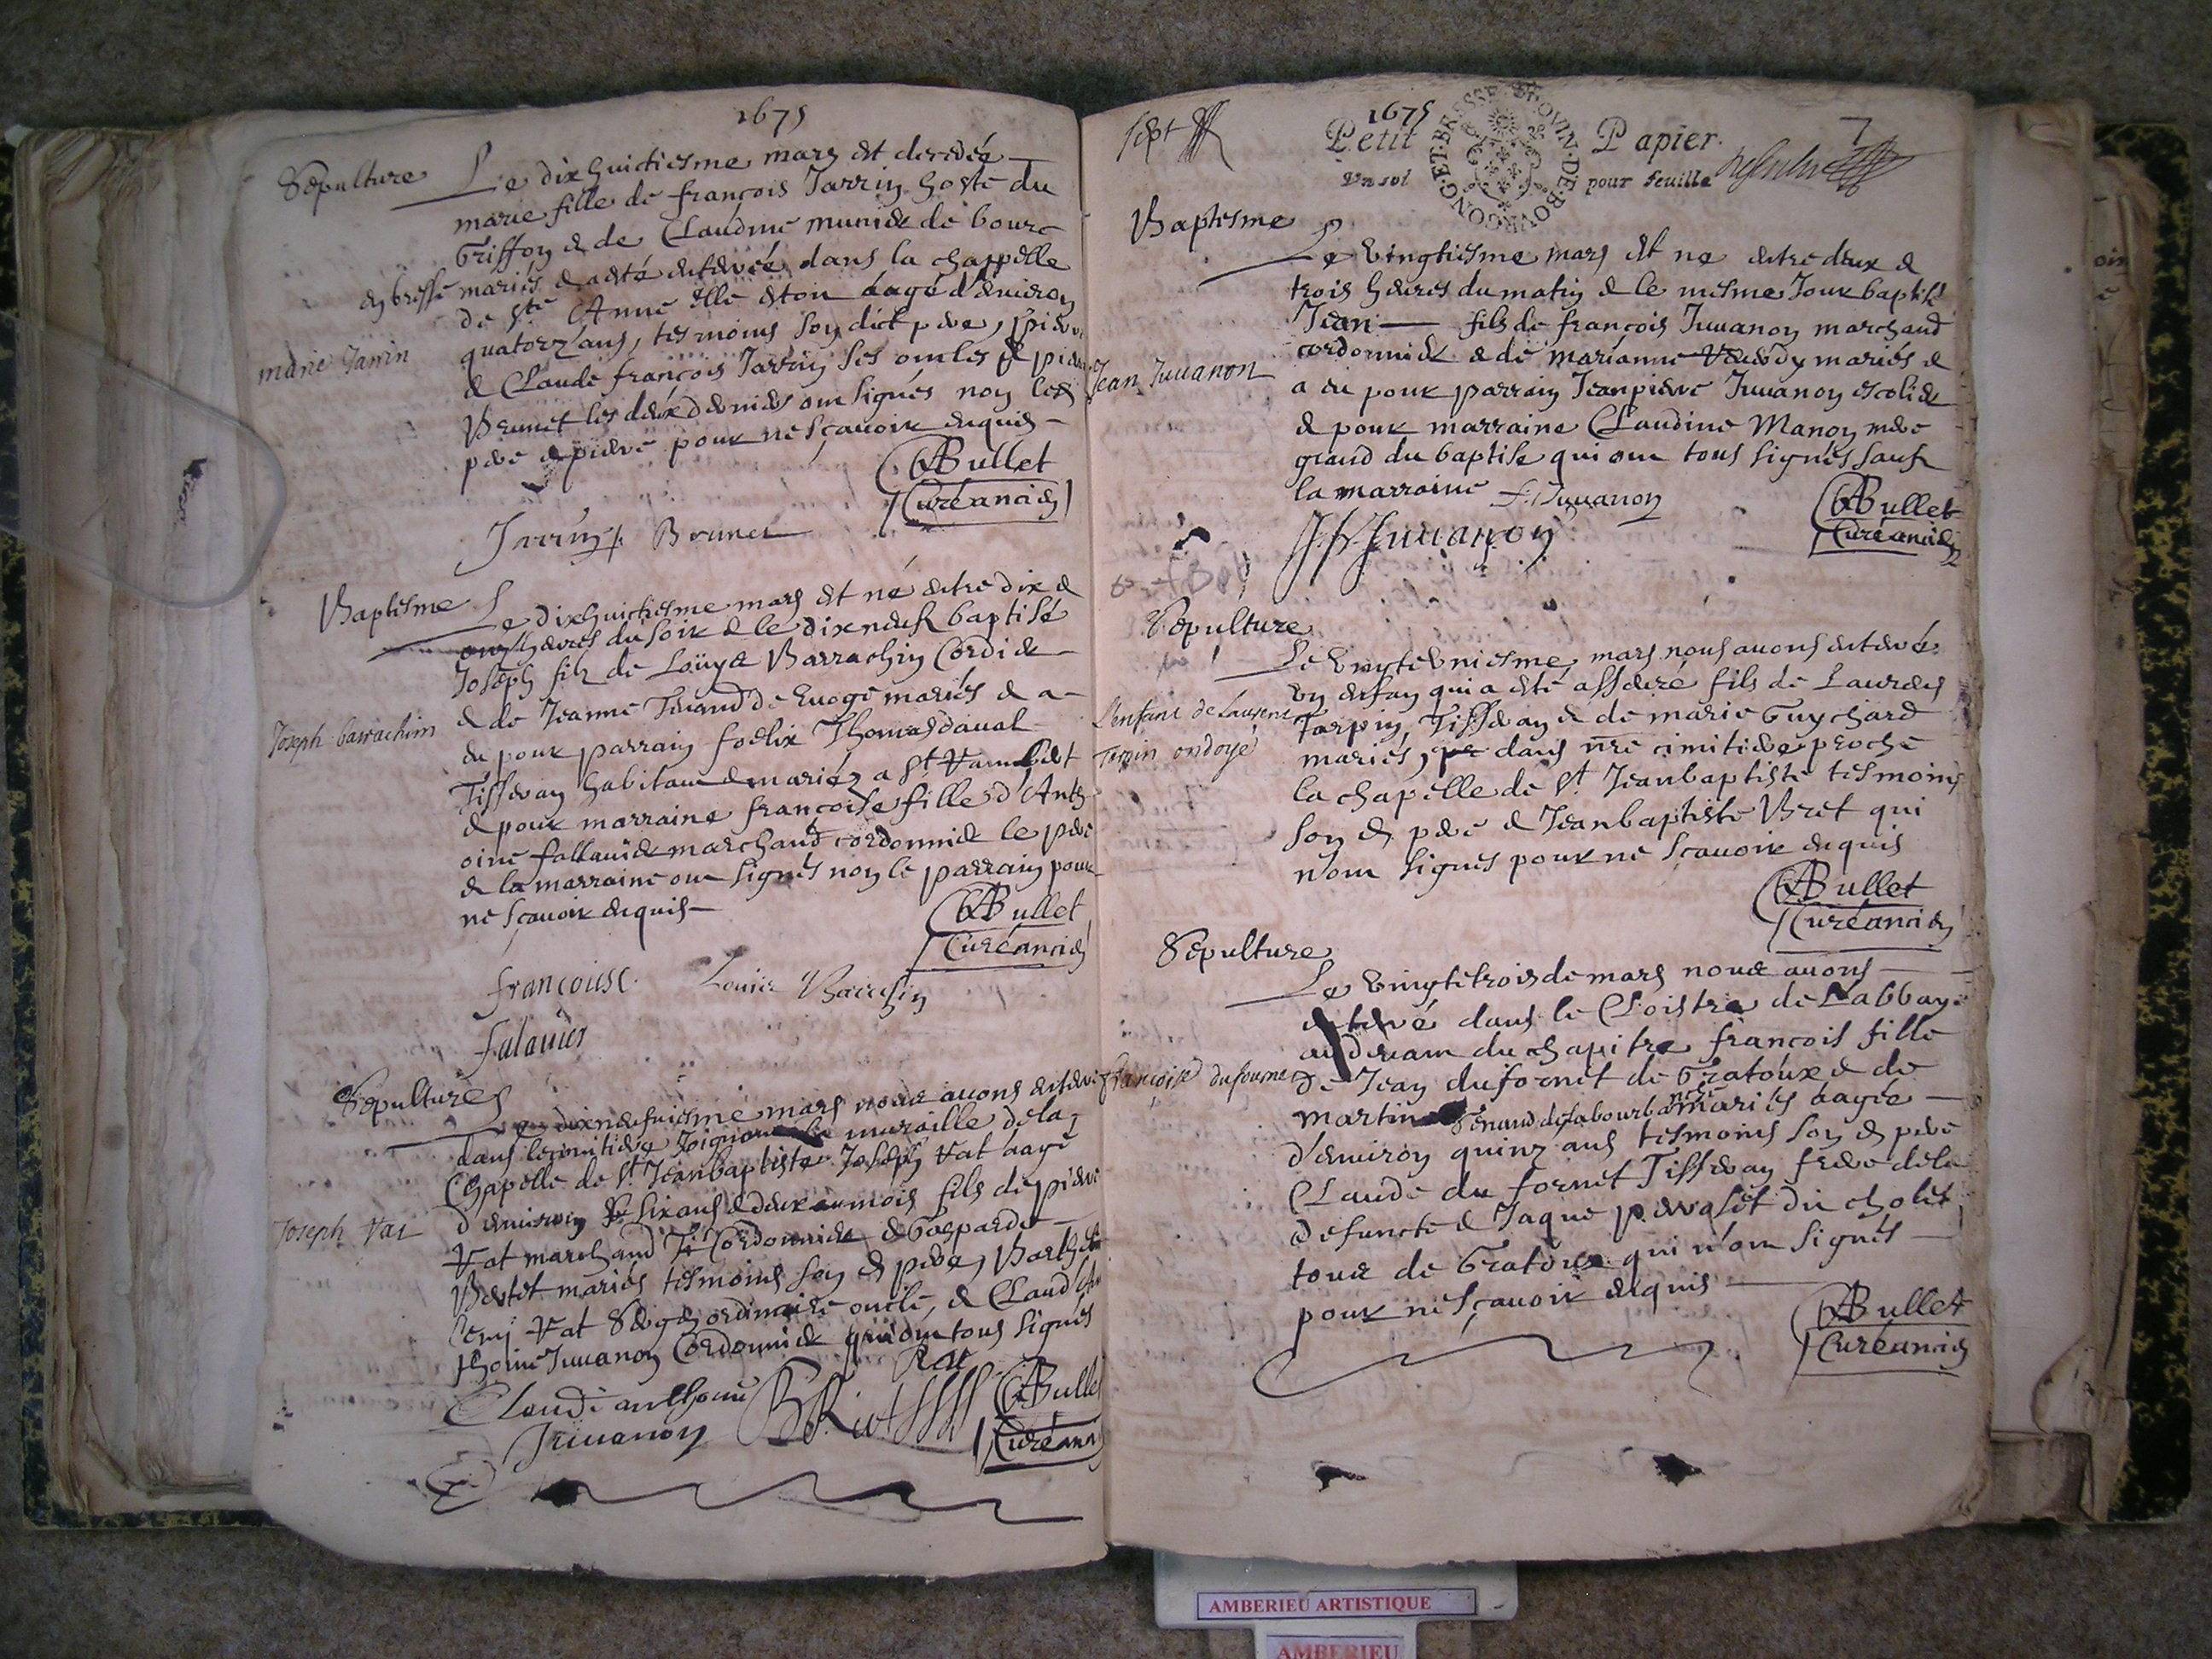 1675
Sepulture
Le dixhuictiesme mars est decedée
marie fille de françois Jarrin hoste du
Griffon & de Claudine munier de bourc
en bresse mariés & a esté enterrée dans la chappelle
de ste Anne elle estoit aagé d'environ
quatorz'ans, tesmoins son dict pere, pierre
& Claude françois Jarrin ses oncles & pierre
Brunet les deux derniers ont signés non les
pere & pierre pour ne sçauoir enquis
marie Jarrin
ABullet
Curé ancien
Jarrin Brunet
Baptesme
Le dixhuictiesme mars est né entre dix &
onz'heures du soir & le dixneuf baptisé
Joseph filz de Louys Barrachin Cordier
& de Jeanne Tenand de Euoge mariés & a
eu pour parrain foelix Thomas daual
Tisseran habitant & mariez a St Rambert
& pour marraine françoise fille d'Anth
oine fallauier marchand cordonnier le pere
& la marraine ont signés non le parrain pour
ne sçauoir enquis
Joseph barrachim
ABullet
Curé ancien
françoise Louis Barrachin
falauier
Sepultures
Le dixneufuiesme mars nous auons enterré
dans le cimitiere Joignant la muraille de la
Chapelle de St Jeanbaptiste Joseph Vat aagé
d'enuiron six ans & deux mois fils de pierre
Vat marchand Cordonnier & Gasparde
Bertet mariés tesmoins son dt pere, Barthe
lemy Vat Sergen ordinaire oncle, & Claud'An
thoine Juuanon Cordonnier qui ont tous signés
Joseph Vat
Claude anthoine
Juuanon
ABullet
Curé ancien
sept
1675
7
Petit Papier
Vn sol pour feuille
BOVRGONG·ET·BRESSE PROVIN·DE
Baptesme
Le vingtiesme mars est ne entre deux &
trois heures du matin & le mesme Jour baptisé
Jean fils de françois Juuanon marchand
cordonnier & de marianne mariés &
a eu pour parrain Jeanpierre Juuanon escolier
& pour marraine Claudine Manon mere
grand du baptisé qui ont tous signés sauf
la marraine
Jean Juuanon
f. Juuanon
JP Juuanon
ABullet
Curé ancien
Sepulture
Le vingtevniesme mars nous auons enterré
vn enfan qui a esté assuré fils de Laurens
Tarpin, Tisseran & de marie Guychard
mariés, dans nre cimitiere proche
la chapelle de St. Jeanbaptiste tesmoins
son dt pere & Jeanbaptiste Bret qui
n'ont signés pour ne sçauoir enquis
L'enfant de Laurent
Tarpin ondoyé
ABullet
Curé ancien
Sepulture
Le vingtetrois de mars nous auons
enterré dans le Cloistre de Labbaye
au deuant du chapitre françois fille
de Jean dufornet de Gratoux & de
martine Tenand de labourba mariés aagée
d'enuiron quinz ans tesmoins son dt pere
Claude du fornet Tisseran frere de la
defuncte & Jaque pervolet du cholet
tous de Gratoux qui n'ont signés
pour ne sçauoir enquis
françoise dufournet
ABullet
Curé ancien
AMBERIEU ARTISTIQUE
AMBERIEU